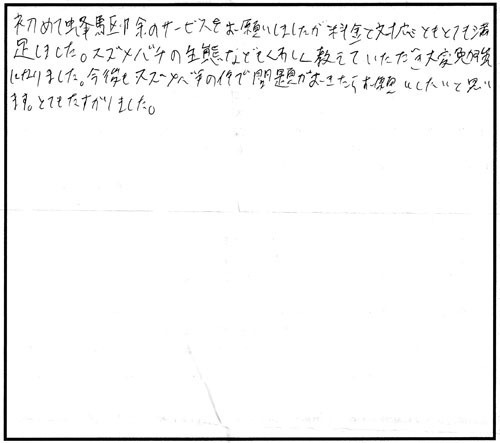 初めて蜂駆除のサービスをお願いしましたが料金と対応ともとても満
足しました。スズメバチの生態などもくわしく教えていただき大変勉強
になりました。今後もスズメバチの件で問題がおきたらお願いしたいと思い
ます。とてもたすかりました。